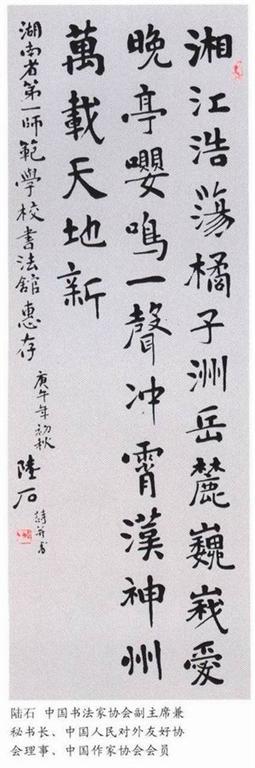 湘江浩蕩橘子洲岳麓巍峩愛
晚亭嚶鳴一聲冲霄漢神州
萬載天地新
湖南省第一師範學校書法舘惠存
庚午年初秋
陸石
陆石 中国书法家协会副主席兼
秘书长、中国人民对外友好协
会理事、中国作家协会会员